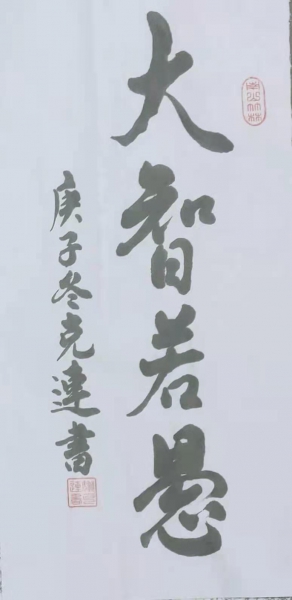 大智若愚
庚子冬克連書